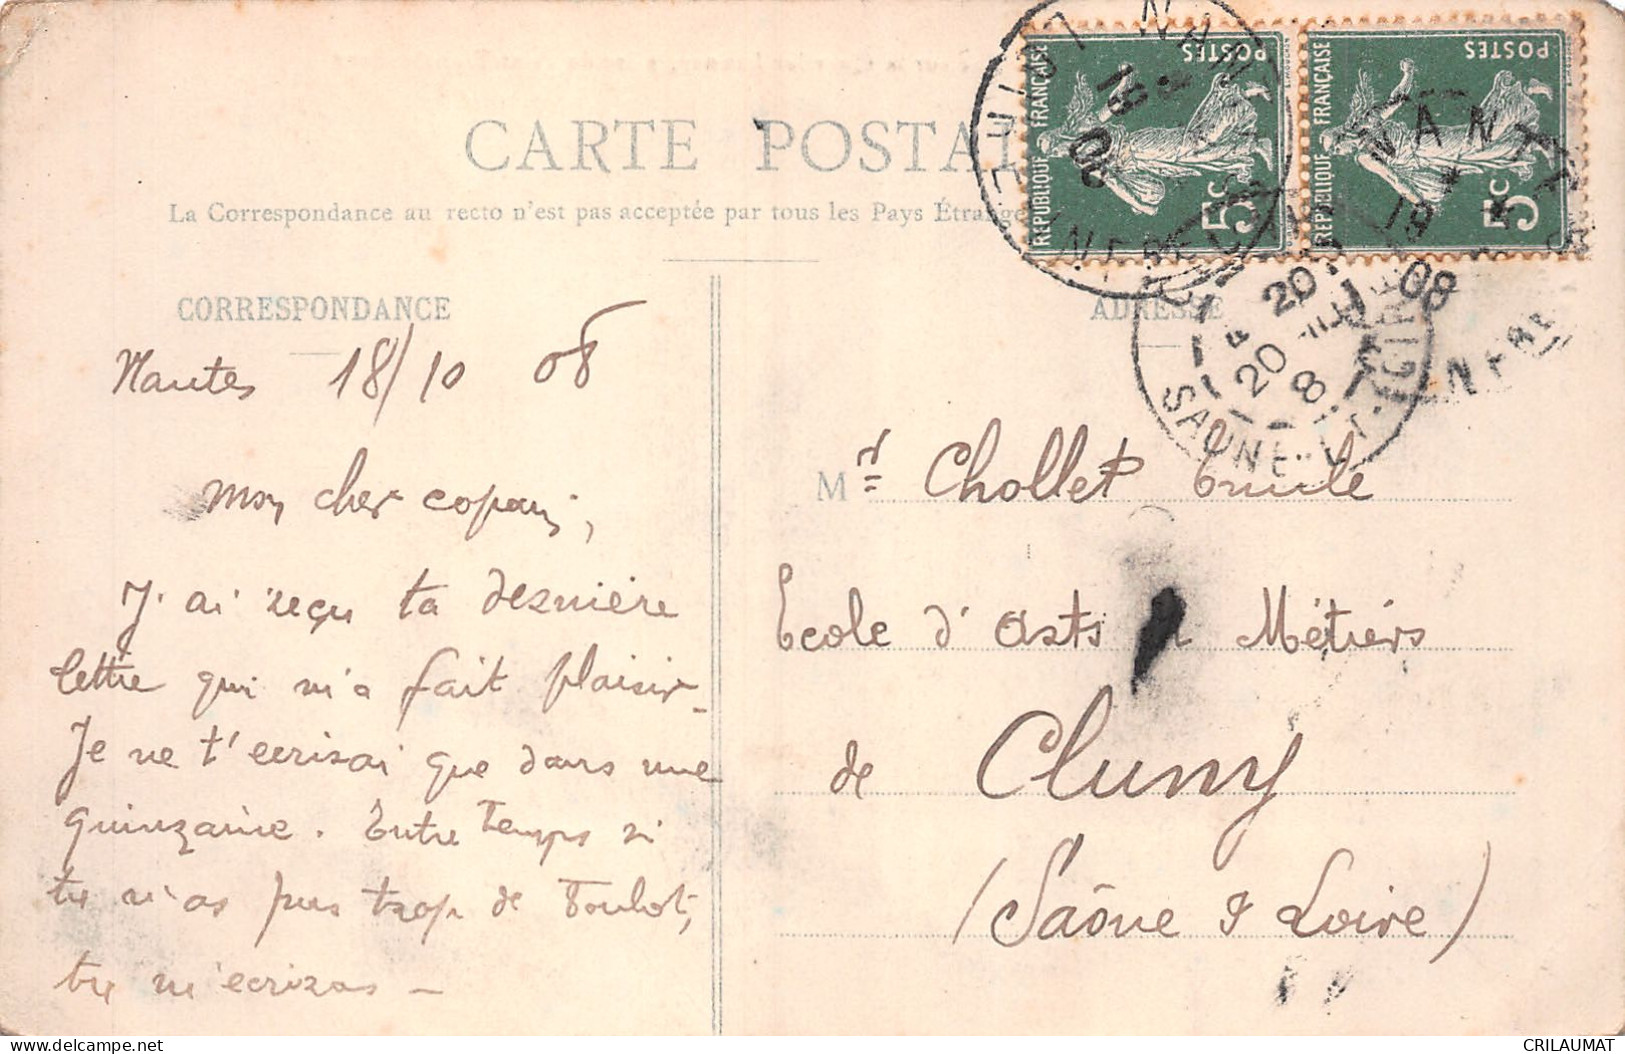 CARTE POSTAL
La Correspondance au recto n'est pas acceptée par tous les Pays Étrange
CORRESPONDANCE
Nantes 18/10 08
Mon cher copain,
J'ai reçu ta dernière
lettre qui m'a fait plaisir_
Je ne t'ecrirai que dans une
quinzaine. Entre temps si
tu n'as pas trop de Boulot,
tu m'ecriras _
REPUBLIQUE FRANÇAISE
POSTES
5c
REPUBLIQUE FRANÇAISE
POSTES
5c
NANTES
19 08
LOIRE INFRE
SAONE-ET-LOIRE
ADRESSE
Mr Chollet Emile
Ecole d'Arts Métiers
de Cluny
(Saône & Loire)
CRILAUMAT